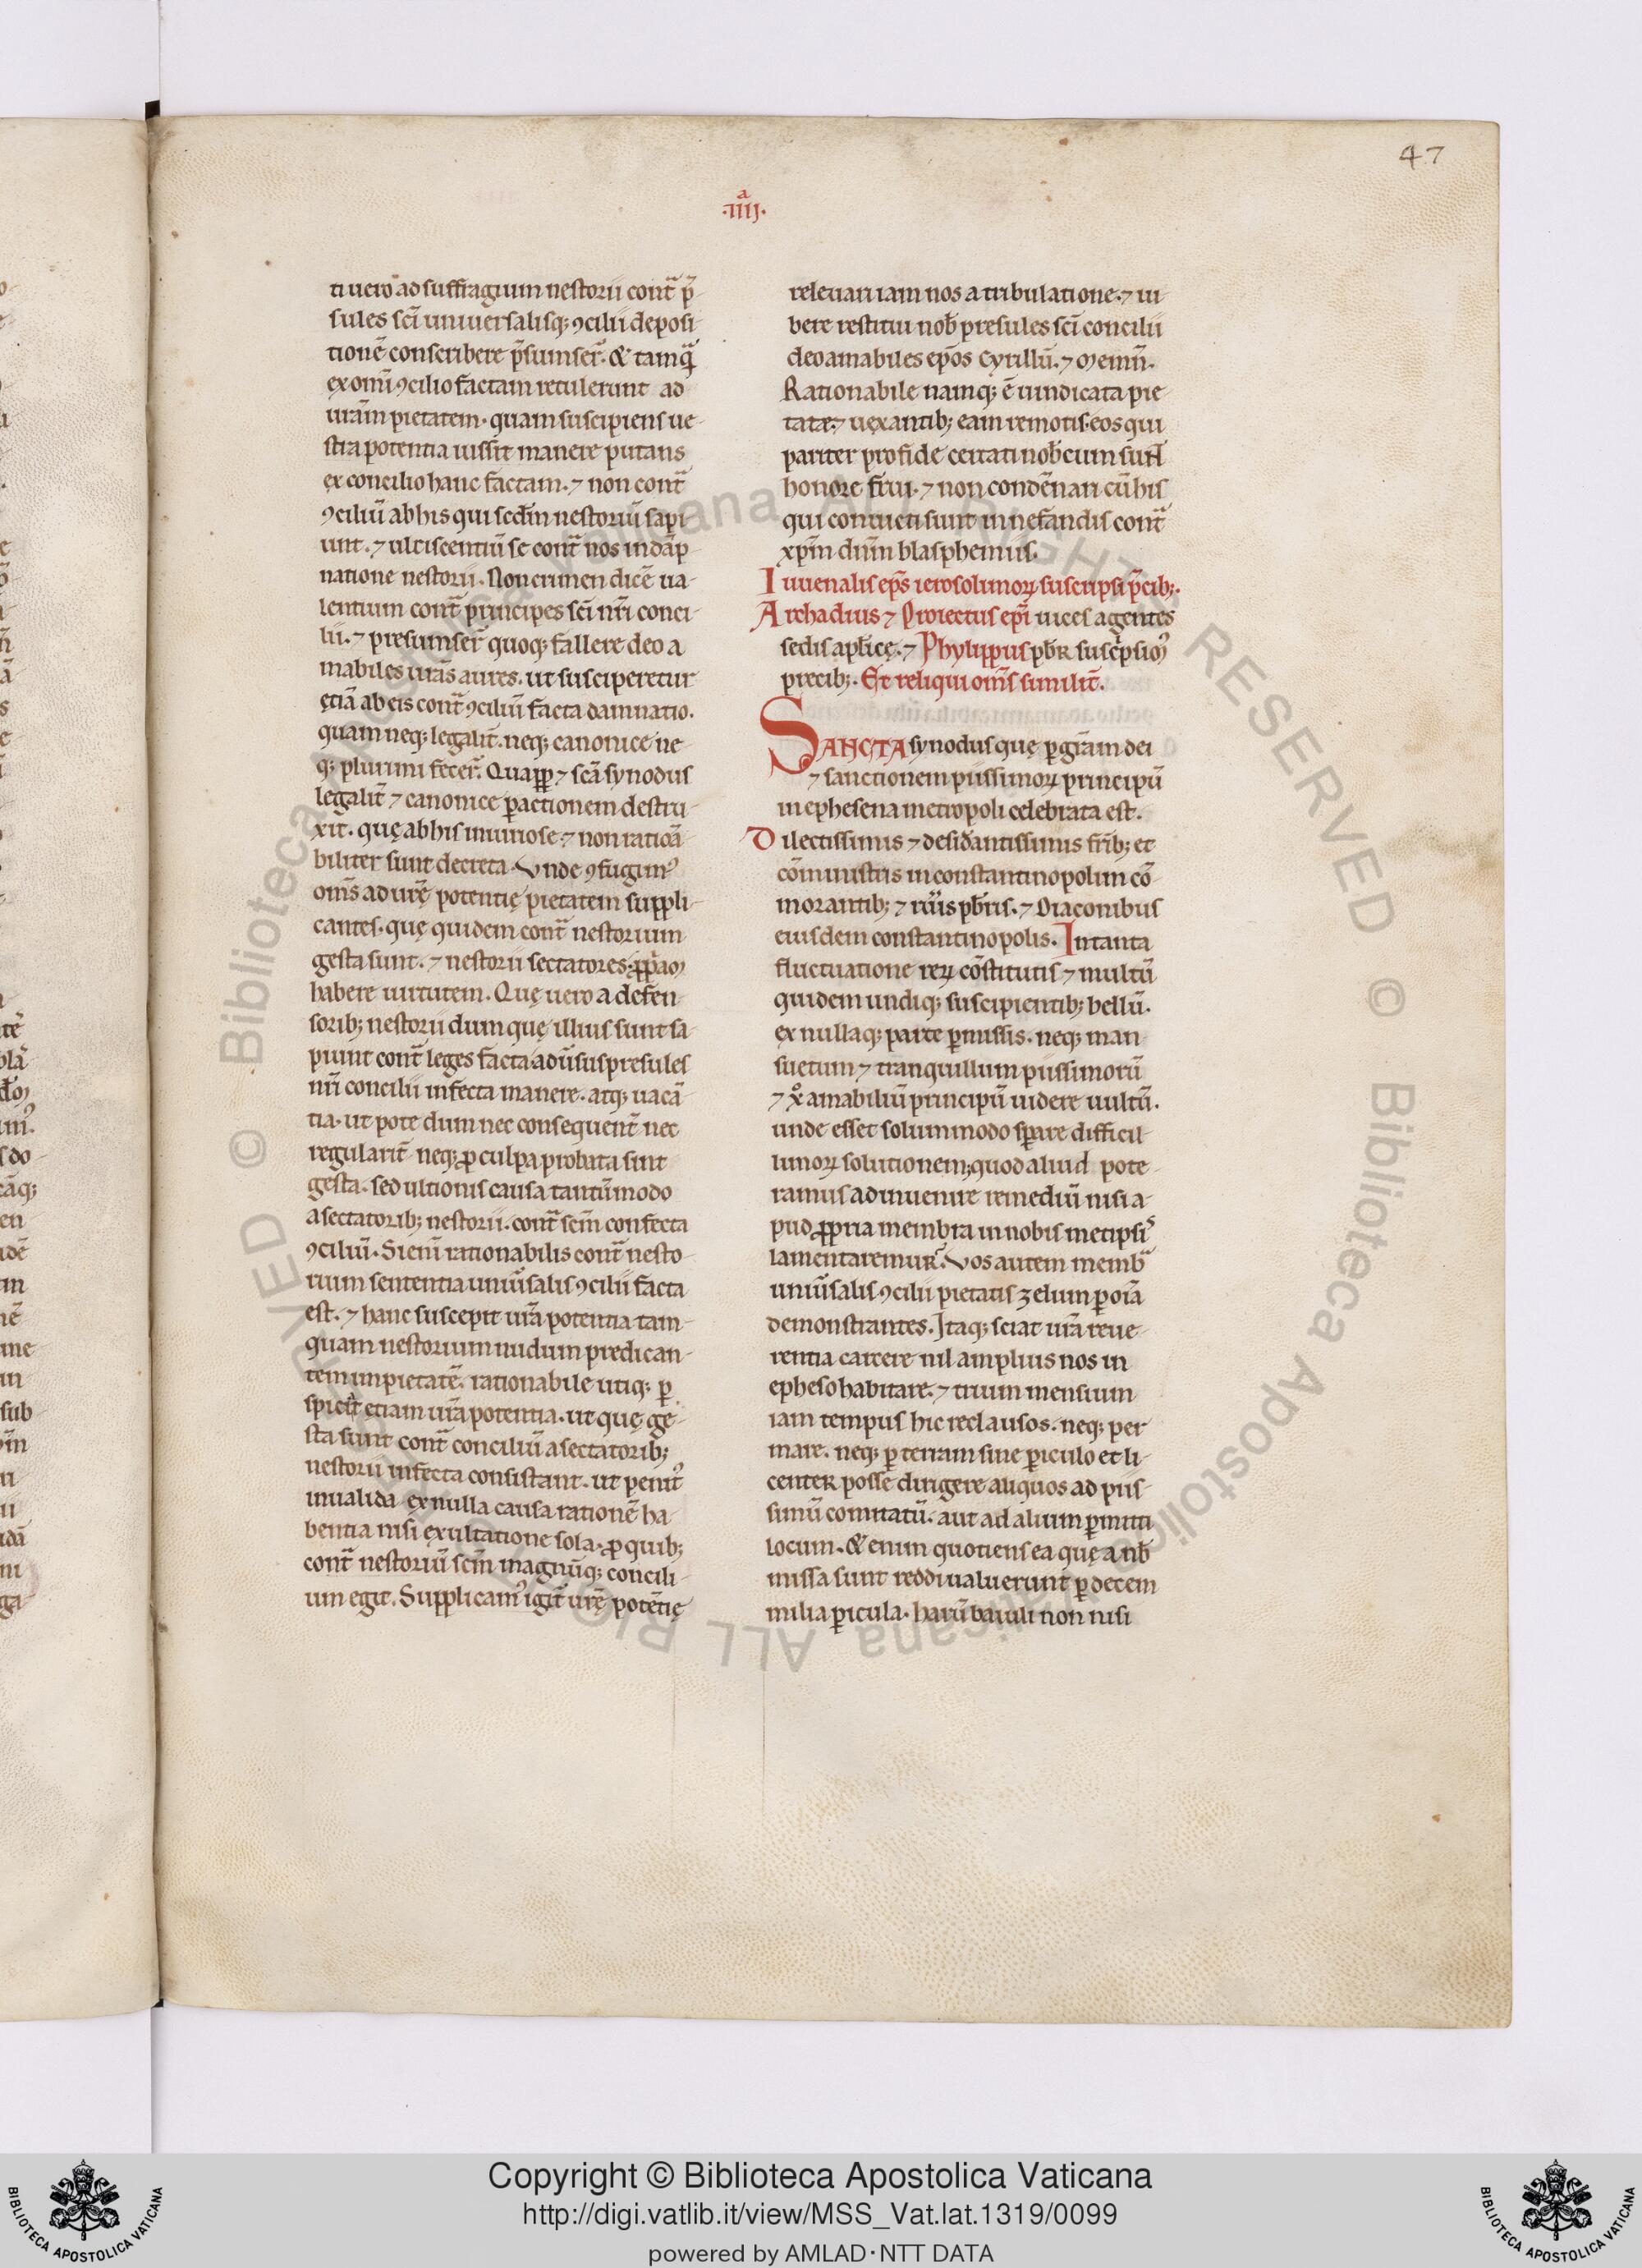 47
.IIII.ͣ
ti uero ad suffragium nestorii cont̃ p̃
sules sc̃i uniuersalisq; ꝯcilii deposi
tionẽ conscribere p̃sumser̃. & tamq̃
ęx om̃i ꝯcilio factam retulerunt ad
ur̃am pietatem. quam suscipiens ue
stra potentia iussit manere putans
ex concilio hanc factam. ⁊ non cont̃
ꝯciliũ ab his qui sedm̃ nestoriũ sapi
unt. ⁊ ulciscentiũ se cont̃ nos in dãp
natione nestorii. Non crimen dicẽ ua
lentium cont̃ principes sc̃i nr̃i conci
lii. ⁊ presumser̃ quoq; fallere deo a
mabiles ur̃as aures. ut susciperetur
ętiã ab eis cont̃ ꝯciliũ facta damnatio.
quam neq; legalit̃. neq; canonice ne
q; plurimi fecer̃. Quapp̱ ⁊ sc̃a synodus
legalit̃ ⁊ canonice ꝑ actionem destru
xit. quę ab his iniuriose ⁊ non rationa
biliter sunt decreta. Vnde ꝯfugim᾽
om̃s ad ur̃ę potentię pietatem suppli
cantes. quę quidem cont̃ nestorium
gesta sunt. ⁊ nestorii sectatores
habere uirtutem. Quę uero a defen
sorib; nestorii dum quę illius sunt sa
piunt cont̃ leges facta adũsus presules
nr̃i concilii infecta manere. atq; uacã
tia. ut pote dum nec consequent̃ nec
regularit̃ neq; ꝓ culpa probata sint
gesta. sed ultionis causa tantũmodo
a sectatorib; nestorii. cont̃ scm̃ confecta
ꝯciliũ. Si enĩ rationabilis cont̃ nesto
rium sententia uniũsalis ꝯcilii facta
est. ⁊ hanc suscepit ur̃a potentia tam
quam nestorium nudum predican
tem impietatẽ. rationabile utiq; ꝑ
spicit̃ etiam ur̃a potentia. ut quę ge
sta sunt cont̃ conciliũ a sectatorib;
nestorii infecta consistant. ut penit᾽
inualida ęx nulla causa rationẽ ha
bentia nisi ęxultatione sola. ꝓ quib;
cont̃ nestoriũ scm̃ magnũq; concili
um egit. Supplicam᾽ igit̃ ur̃ę potẽtię
releuari iam nos a tribulatione. ⁊ iu
bere restitui nob̃ presules sc̃i concilii
deo amabiles ep̃os Cyrillũ. ⁊ Memñ.
Rationabile namq; ẽ uindicata pie
tate. ⁊ uęxantib; eam remotis. eos qui
pariter pro fide certati nob̃cum sunt
honore frui. ⁊ non condẽnari cũ his
qui conuicti sunt in nefandis cont̃
xp̃m dñm blasphemiis.
Iuuenalis ep̃s ierosolimoꝝ suscripsi p̃cib;.
Archadius ⁊ Proiectus ep̃i uices agentes
sedis ap̃licę. ⁊ Phylippus pb̃r suscripsim᾽
precib;. Et reliqui om̃s similit̃.
SANCTA synodus quę ꝑ gr̃am dei
⁊ sanctionem piissimoꝝ principũ
in ephesena metropoli celebrata est.
Dilectissimis ⁊ desid̃antissimis fr̃ib; et
cõministris in constantinopolim cõ
morantib; ⁊ pb̃ris. ⁊ Diaconibus
eiusdem constantinopolis. In tanta
fluctuatione reꝝ cõstitutis ⁊ multũ
quidem undiq; suscipientib; bellũ.
ęx nullaq; parte ꝑmissis. neq; man
suetum ⁊ tranquillum piissimorũ
⁊ xp̃o amabiliũ principũ uidere uultũ.
unde esset solummodo sperare difficil
limoꝝ solutionem; quod aliud pote
ramus adinuenire remediũ nisi a
pud ꝓpria membra in nobis metipsis
lamentaremur. Vos autem memb̃
uniũsalis ꝯcilii pietatis zelum ꝑ oĩa
demonstrantes. Itaq; sciat ur̃a reue
rentia carcere nil amplius nos in
epheso habitare. ⁊ trium mensium
iam tempus hic reclausos. neq; per
mare. neq; ꝑ terram sine ꝑiculo et li
center posse dirigere aliquos ad piis
simũ comitatũ. aut ad alium ꝑmitti
locum. & enim quotiens ea quę a nb̃
missa sunt reddi ualuerunt ꝑ decem
milia ꝑicula. harũ baiuli non nisi
© Biblioteca Apostolica Vaticana ALL RIGHTS RESERVED © Biblioteca Apostolica Vaticana ALL RIGHTS RESERVED
Copyright © Biblioteca Apostolica Vaticana
http://digi.vatlib.it/view/MSS_Vat.lat.1319/0099
powered by AMLAD·NTT DATA
BIBLIOTECA APOSTOLICA VATICANA
BIBLIOTECA APOSTOLICA VATICANA